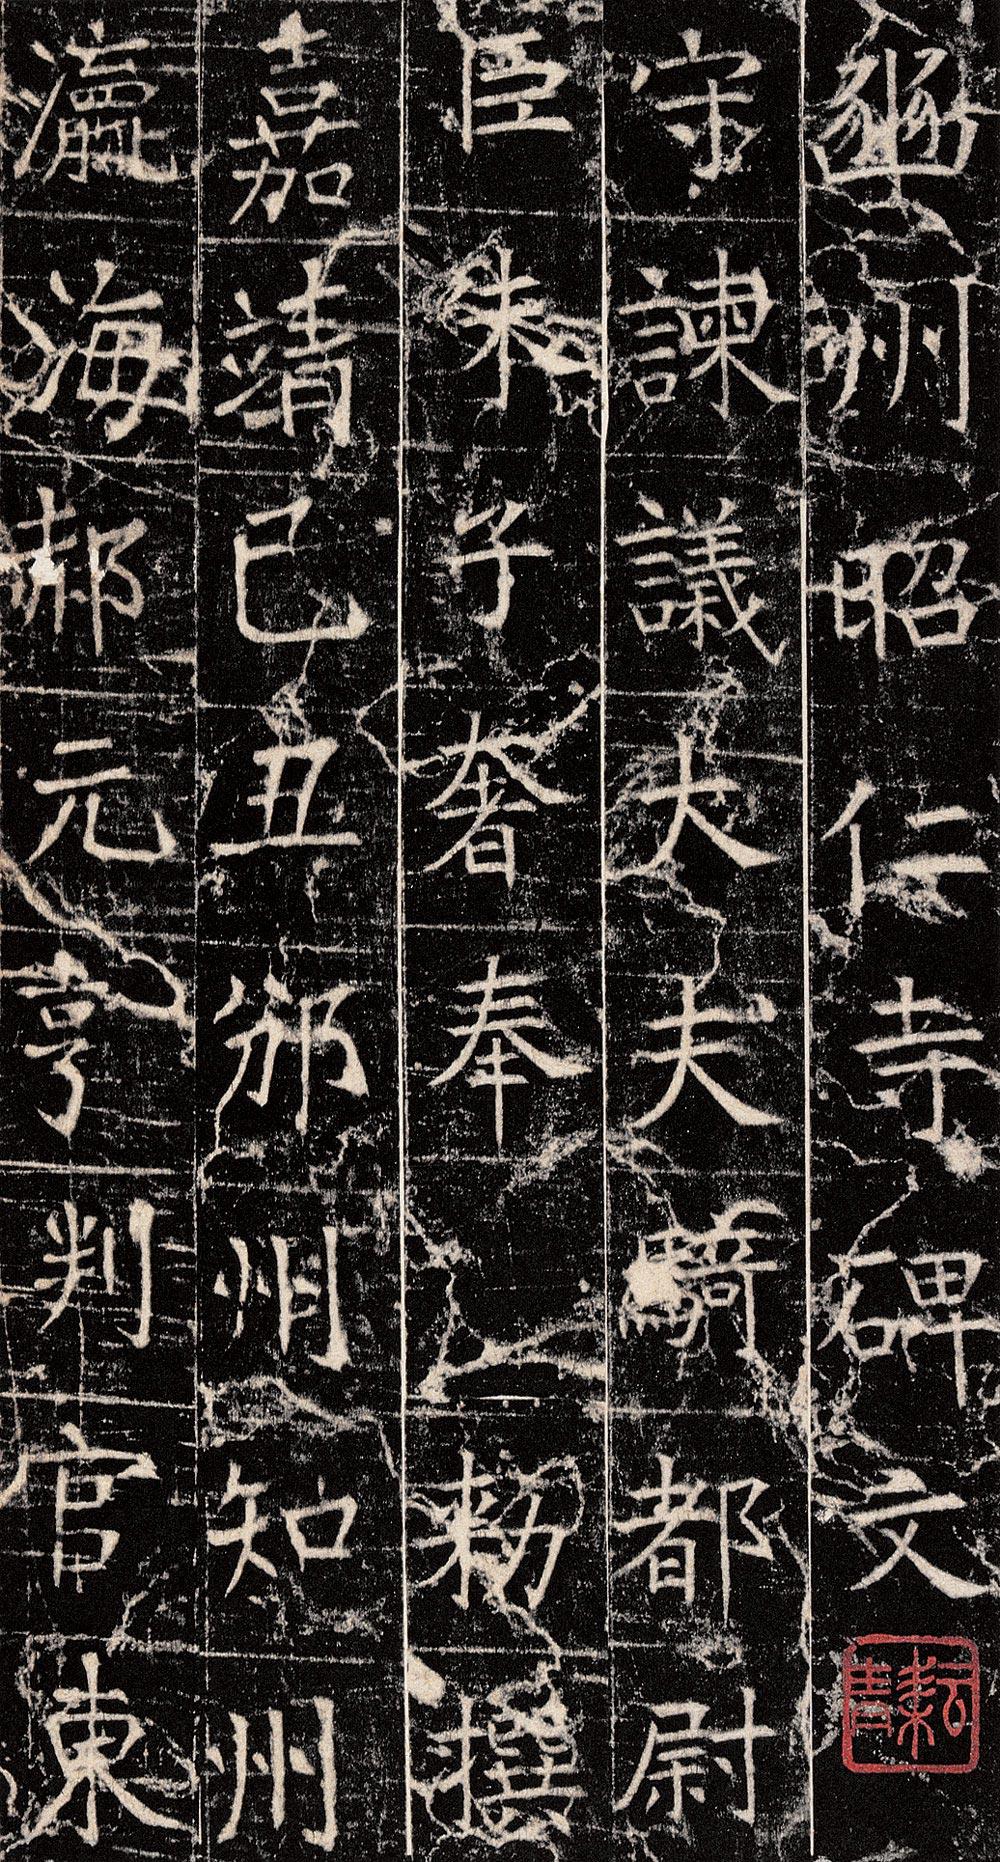 豳州昭仁寺碑文
耘青
守諫議大夫騎都尉
臣朱子奢奉
勑撰
嘉靖己丑邠州知州
瀛海郝元亨判官東